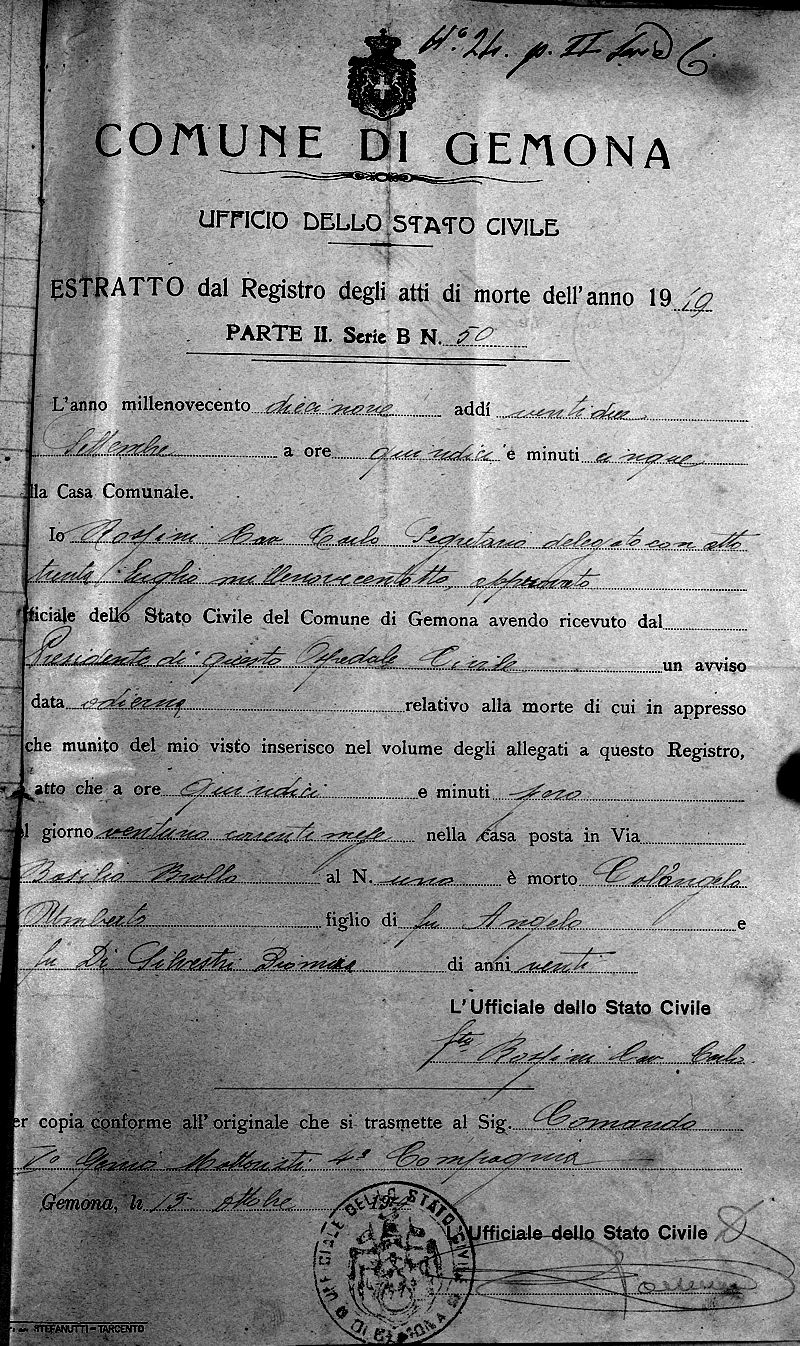 N.° 24. p. II Serie C
COMUNE DI GEMONA
UFFICIO DELLO STATO CIVILE
ESTRATTO dal Registro degli atti di morte dell'anno 1919
PARTE II. Serie B N. 50
L'anno millenovecento diecinove addí ventidue
Settembre a ore quindici e minuti cinque
lla Casa Comunale.
Io Rossini Cav Carlo Segretario delegato con atto
trenta luglio millenovecentotto, approvato
fficiale dello Stato Civile del Comune di Gemona avendo ricevuto dal
Presidente di questo Ospedale Civile un avviso
data odierna relativo alla morte di cui in appresso
che munito del mio visto inserisco nel volume degli allegati a questo Registro,
atto che a ore quindici e minuti zero
l giorno ventuno corrente mese nella casa posta in Via
Basilio Brollo al N. uno è morto Colangelo
Umberto figlio di fu Angelo e
fu Di Silvestri di anni venti
L'Ufficiale dello Stato Civile
fto Rossini Cav Carlo
er copia conforme all'originale che si trasmette al Sig. Comando
Genio 4ª Compagnia
Gemona, li 13 ottobre
L'Ufficiale dello Stato Civile
UFFICIALE DELLO STATO CIVILE
STEFANUTTI - TARCENTO